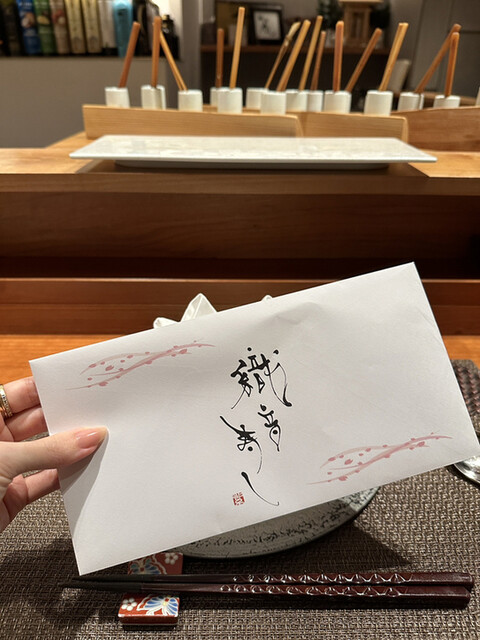 織音寿し